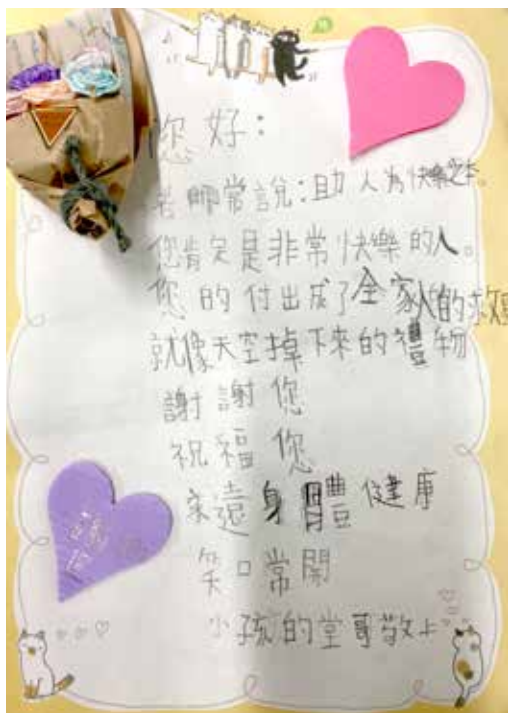 您好：
老師常說：助人為快樂之本。
您肯定是非常快樂的人。
您的付出成了全家人的救
就像天空掉下來的禮物
謝謝您
祝福您
永遠身體健康
笑口常開
小孩的堂哥敬上